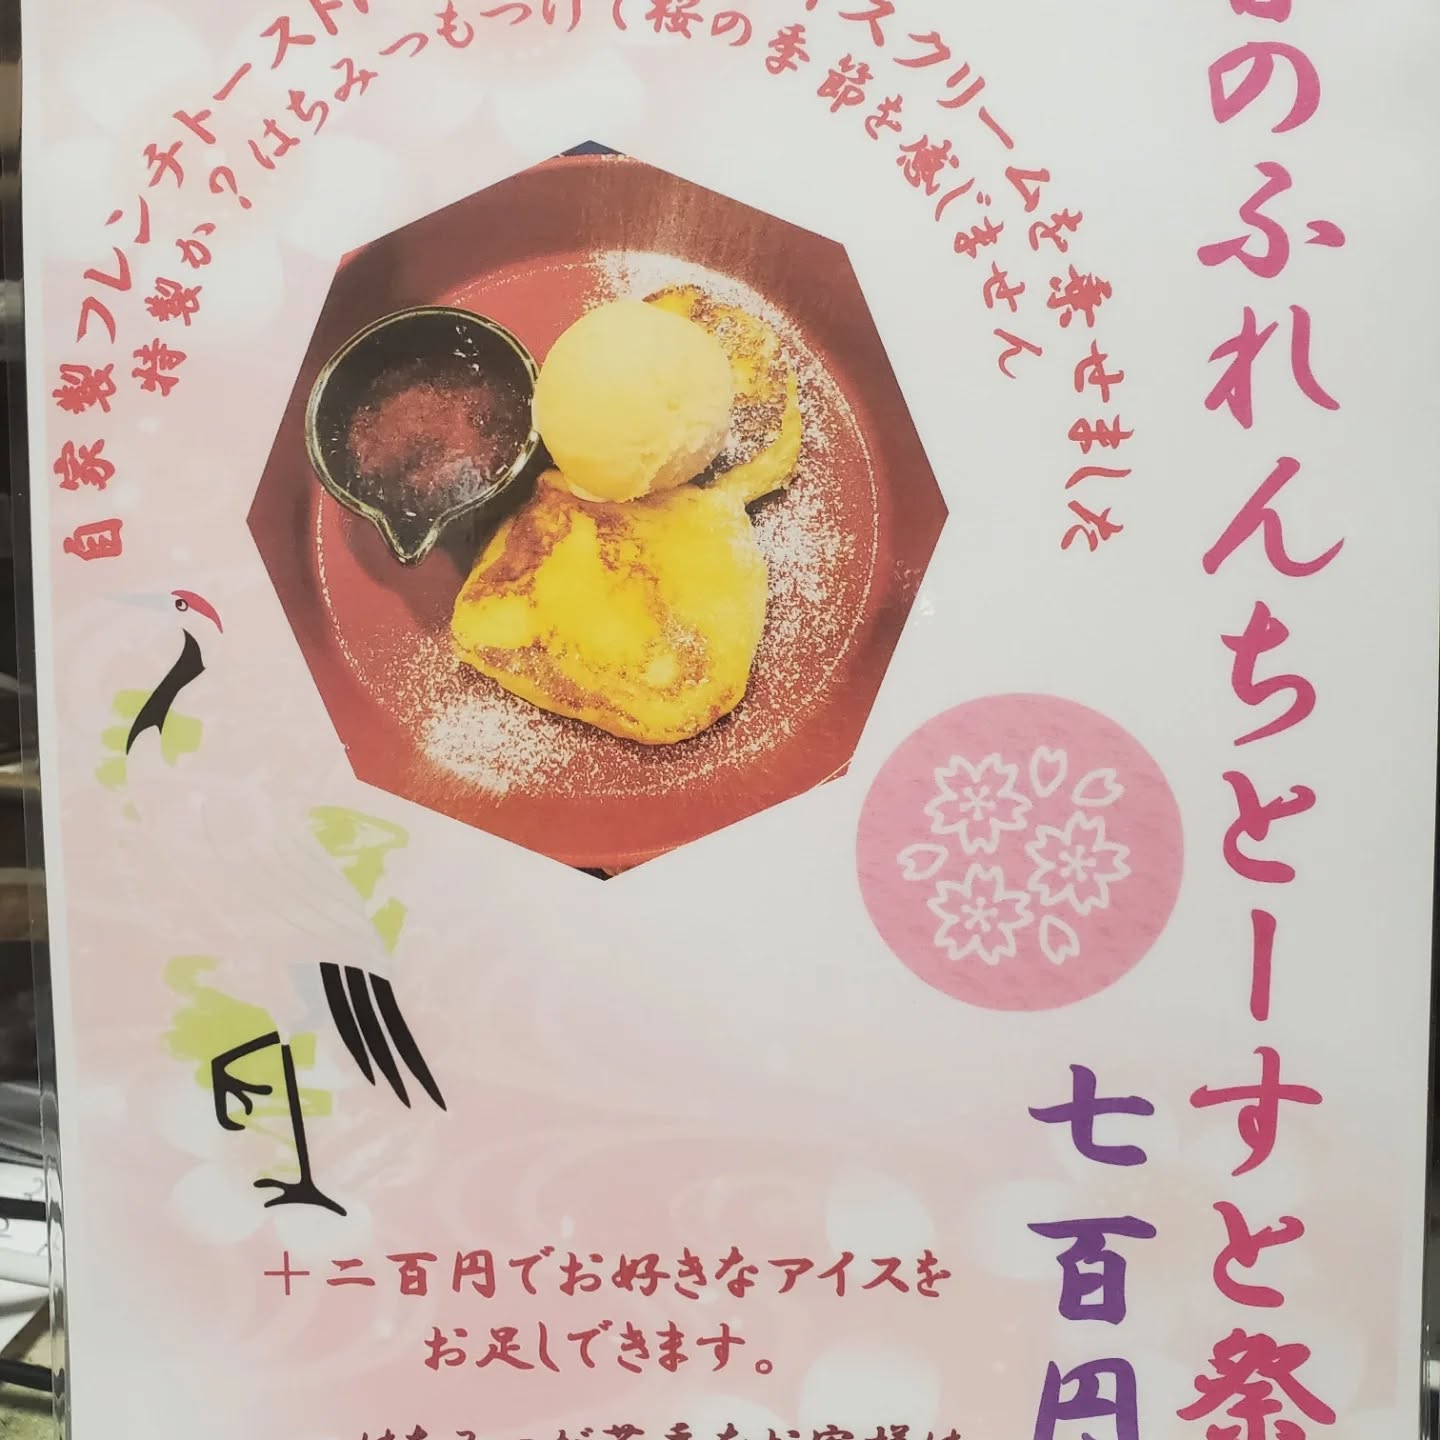 のふれんちとーすと祭
七百円
自家製フレンチトースト
イスクリームを乗せました
特製か?はちみつもつけて桜の季節を感じません
+二百円でお好きなアイスを
お足しできます。